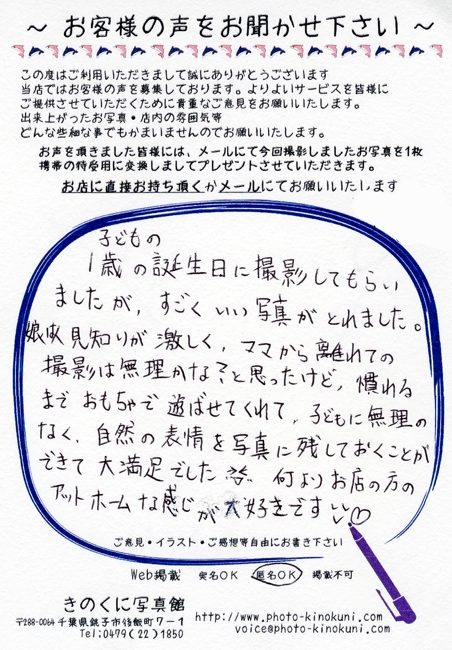 ～ お客様の声をお聞かせ下さい ～
この度はご利用いただきまして誠にありがとうございます
当店ではお客様の声を募集しております。よりよいサービスを皆様に
ご提供させていただくために貴重なご意見をお願いいたします。
出来上がったお写真・店内の雰囲気等
どんな些細な事でもかまいませんのでお願いいたします。
お声を頂きました皆様には、メールにて今回撮影しましたお写真を1枚
携帯の待受用に変換しましてプレゼントさせていただきます。
お店に直接お持ち頂くかメールにてお願いいたします
子どもの
1歳の誕生日に撮影してもらい
ましたが、すごくいい写真がとれました。
娘は人見知りが激しく、ママから離れての
撮影は無理かな?と思ったけど、慣れる
までおもちゃで遊ばせてくれて、子どもに無理の
なく、自然の表情を写真に残しておくことが
できて大満足でした 何よりお店の方の
アットホームな感じが大好きです
ご意見・イラスト・ご感想等自由にお書き下さい
Web掲載 実名OK 匿名OK 掲載不可
きのくに写真館
〒288-0064 千葉県銚子市後飯町7-1
Tel:0479(22)1850
http://www.photo-kinokuni.com/
voice@photo-kinokuni.com